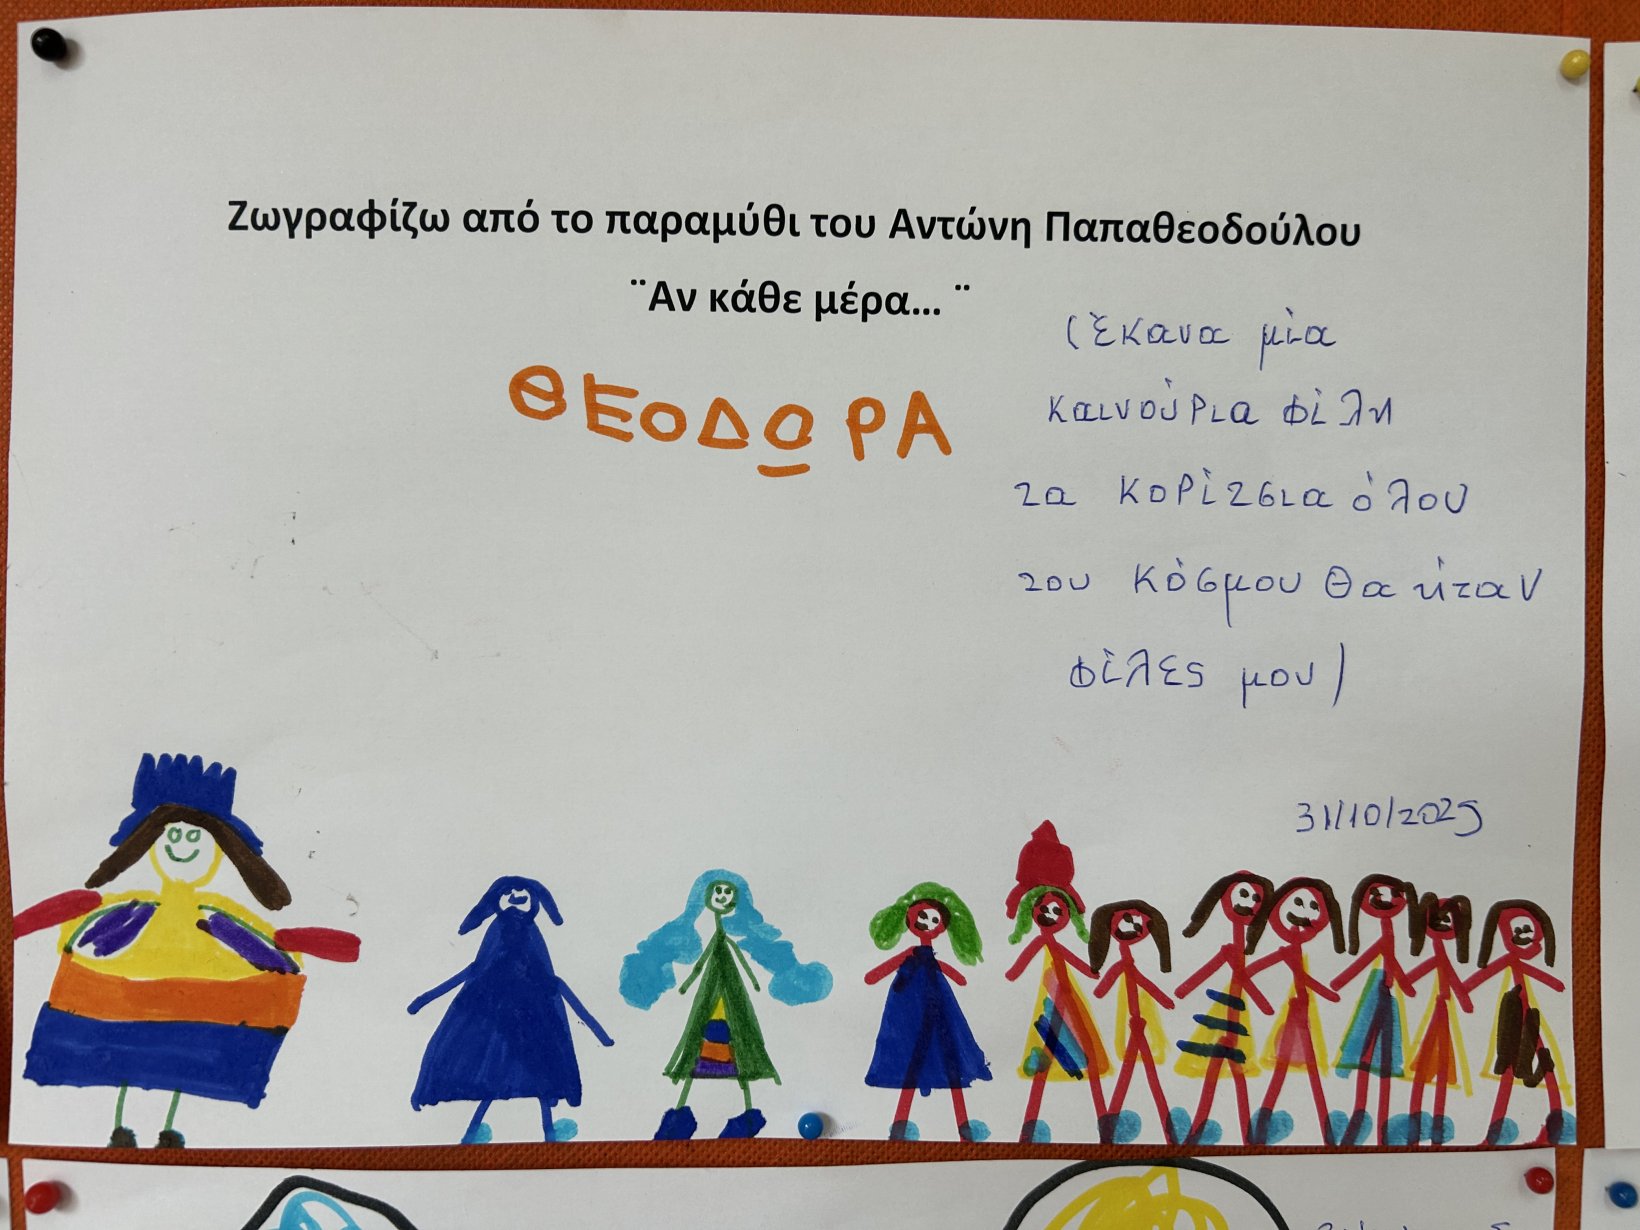 Ζωγραφίζω από το παραμύθι του Αντώνη Παπαθεοδούλου
¨Αν κάθε μέρα... ¨
ΘΕΟΔΩΡΑ
(έκανα μία
καινούρια φίλη
τα κορίτσια όλου
του κόσμου θα ήταν
φίλες μου)
31/10/2025